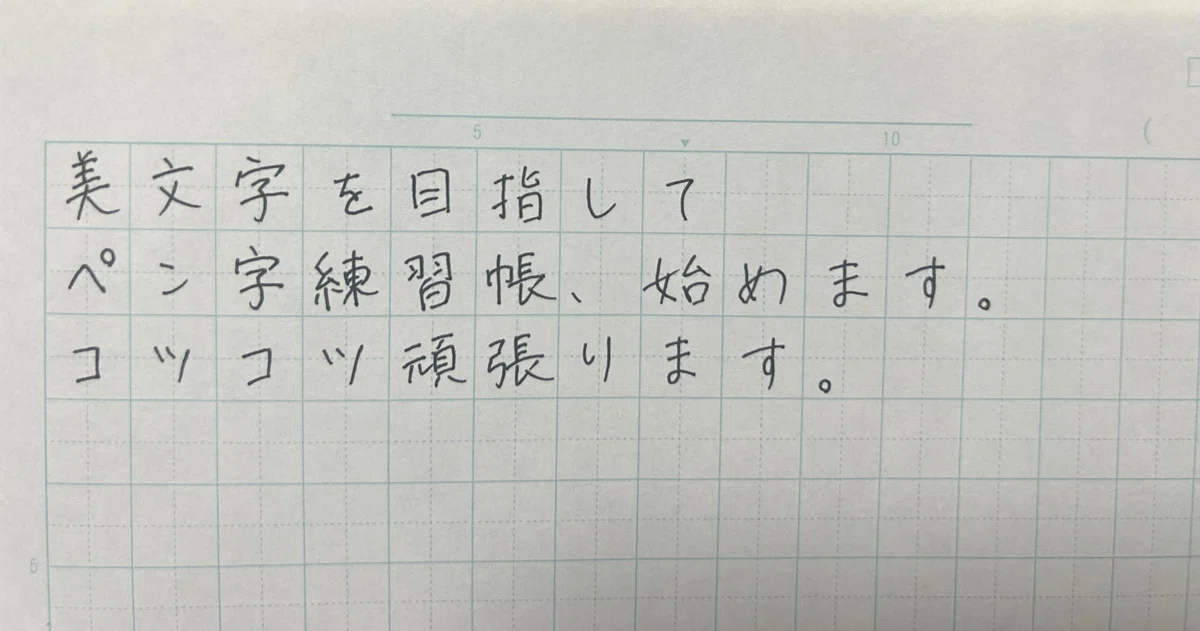 5 10 (
美文字を目指して
ペン字練習帳、始めます。
コツコツ頑張ります。